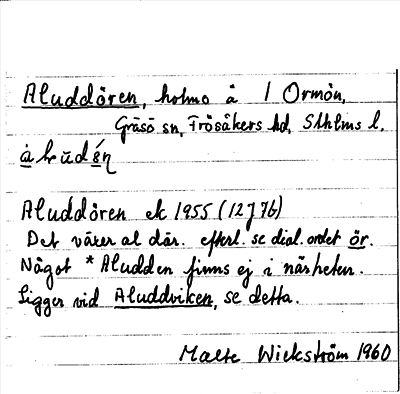 Aluddören, holme å / Ormön,
Gräsö sn, Frösåkers hd, Sthlms l.
Aluddören ek 1955 (12J7b)
Det växer al där. efterl. se dial. ordet ör.
Något *Aludden finns ej i närheten.
Ligger vid Aluddviken, se detta.
Malte Wickström 1960